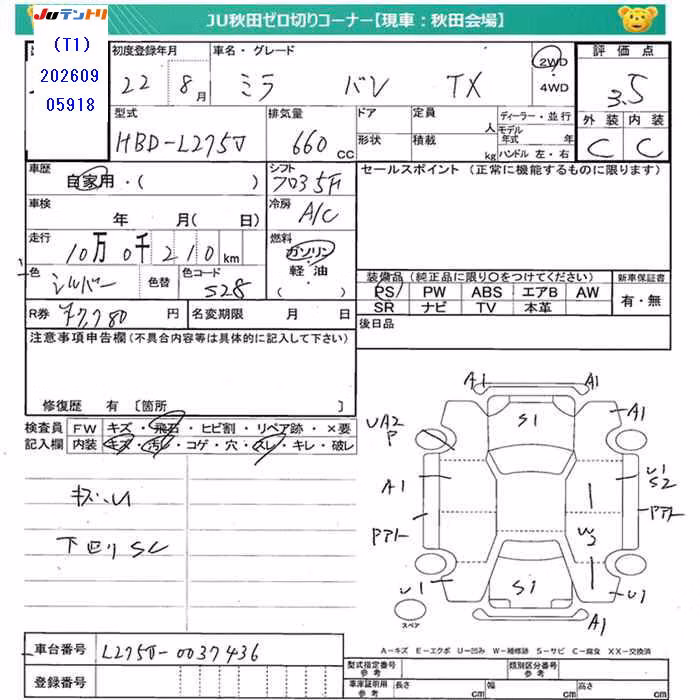 JUテントリ
(T1)
202609
05918
JU秋田ゼロ切りコーナー【現車：秋田会場】
初度登録年月
22年 8月
車名・グレード
ミラ バン TX
2WD
・
4WD
評価点
3.5
外装 内装
C C
型式
HBD-L275V
排気量
660 cc
ドア
形状
定員
人
積載
kg
ディーラー・並行
モデル年式 年
ハンドル 左・右
車歴
自家用・( )
シフト
フロア5F
セールスポイント (正常に機能するものに限ります)
車検
年 月( 日)
冷房
A/C
走行
10万0千210km
燃料
ガソリン
・
軽・油
( )
色
シルバー
色替
色コード
S28
装備品 (純正品に限り〇をつけてください)
PS PW ABS エアB AW
SR ナビ TV 本革
新車保証書
有・無
R券 ¥7,780 円
名変期限 月 日
後日品
注意事項申告欄(不具合内容等は具体的に記入して下さい)
修復歴 有 [箇所 ]
検査員記入欄
FW キズ・飛石・ヒビ割・リペア跡・×要
内装 キズ・汚れ・コゲ・穴・スレ・キレ・破レ
キズ・U
下回りSC
A1 A1
S1
A1
UA2
P
A1
U1
S2
Pアト
Pアト
W2
U1
S1
U1
A1
スペア
A-キズ E-エクボ U-凹み W-補修跡 S-サビ C-腐食 XX-交換済
車台番号 L275V-0037436
登録番号
型式指定番号
参考
類別区分番号
参考
車庫証明用
参考
長さ cm 幅 cm 高さ cm